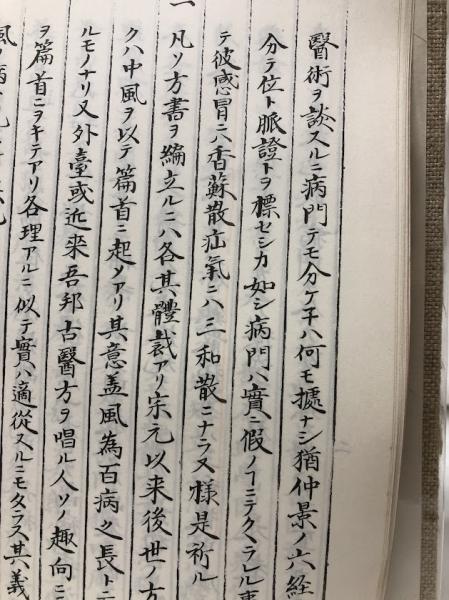 醫術ヲ談スルニ病門テモ分ケ子ハ何モ據ナシ猶仲景ノ六経
分テ位ト脈證トヲ標セシカ如シ病門ハ實ニ假ノ丁ニテクヽラレル
テ彼感冒ニハ香蘇散疝氣ニハ三和散ニナラヌ様是祈ル
一凡ソ方書ヲ編立ルニハ各其體裁アリ宋元以来後世ノ方
クハ中風ヲ以テ篇首ニ起ソアリ其意盖風為百病之長トニ
ルモノナリ又外臺或近来吾邦古醫方ヲ唱ル人ソノ趣向ニ
ヲ篇首ニヲキテアリ各理アルニ似テ實ハ適從スルニモタラス其義
風ノ病